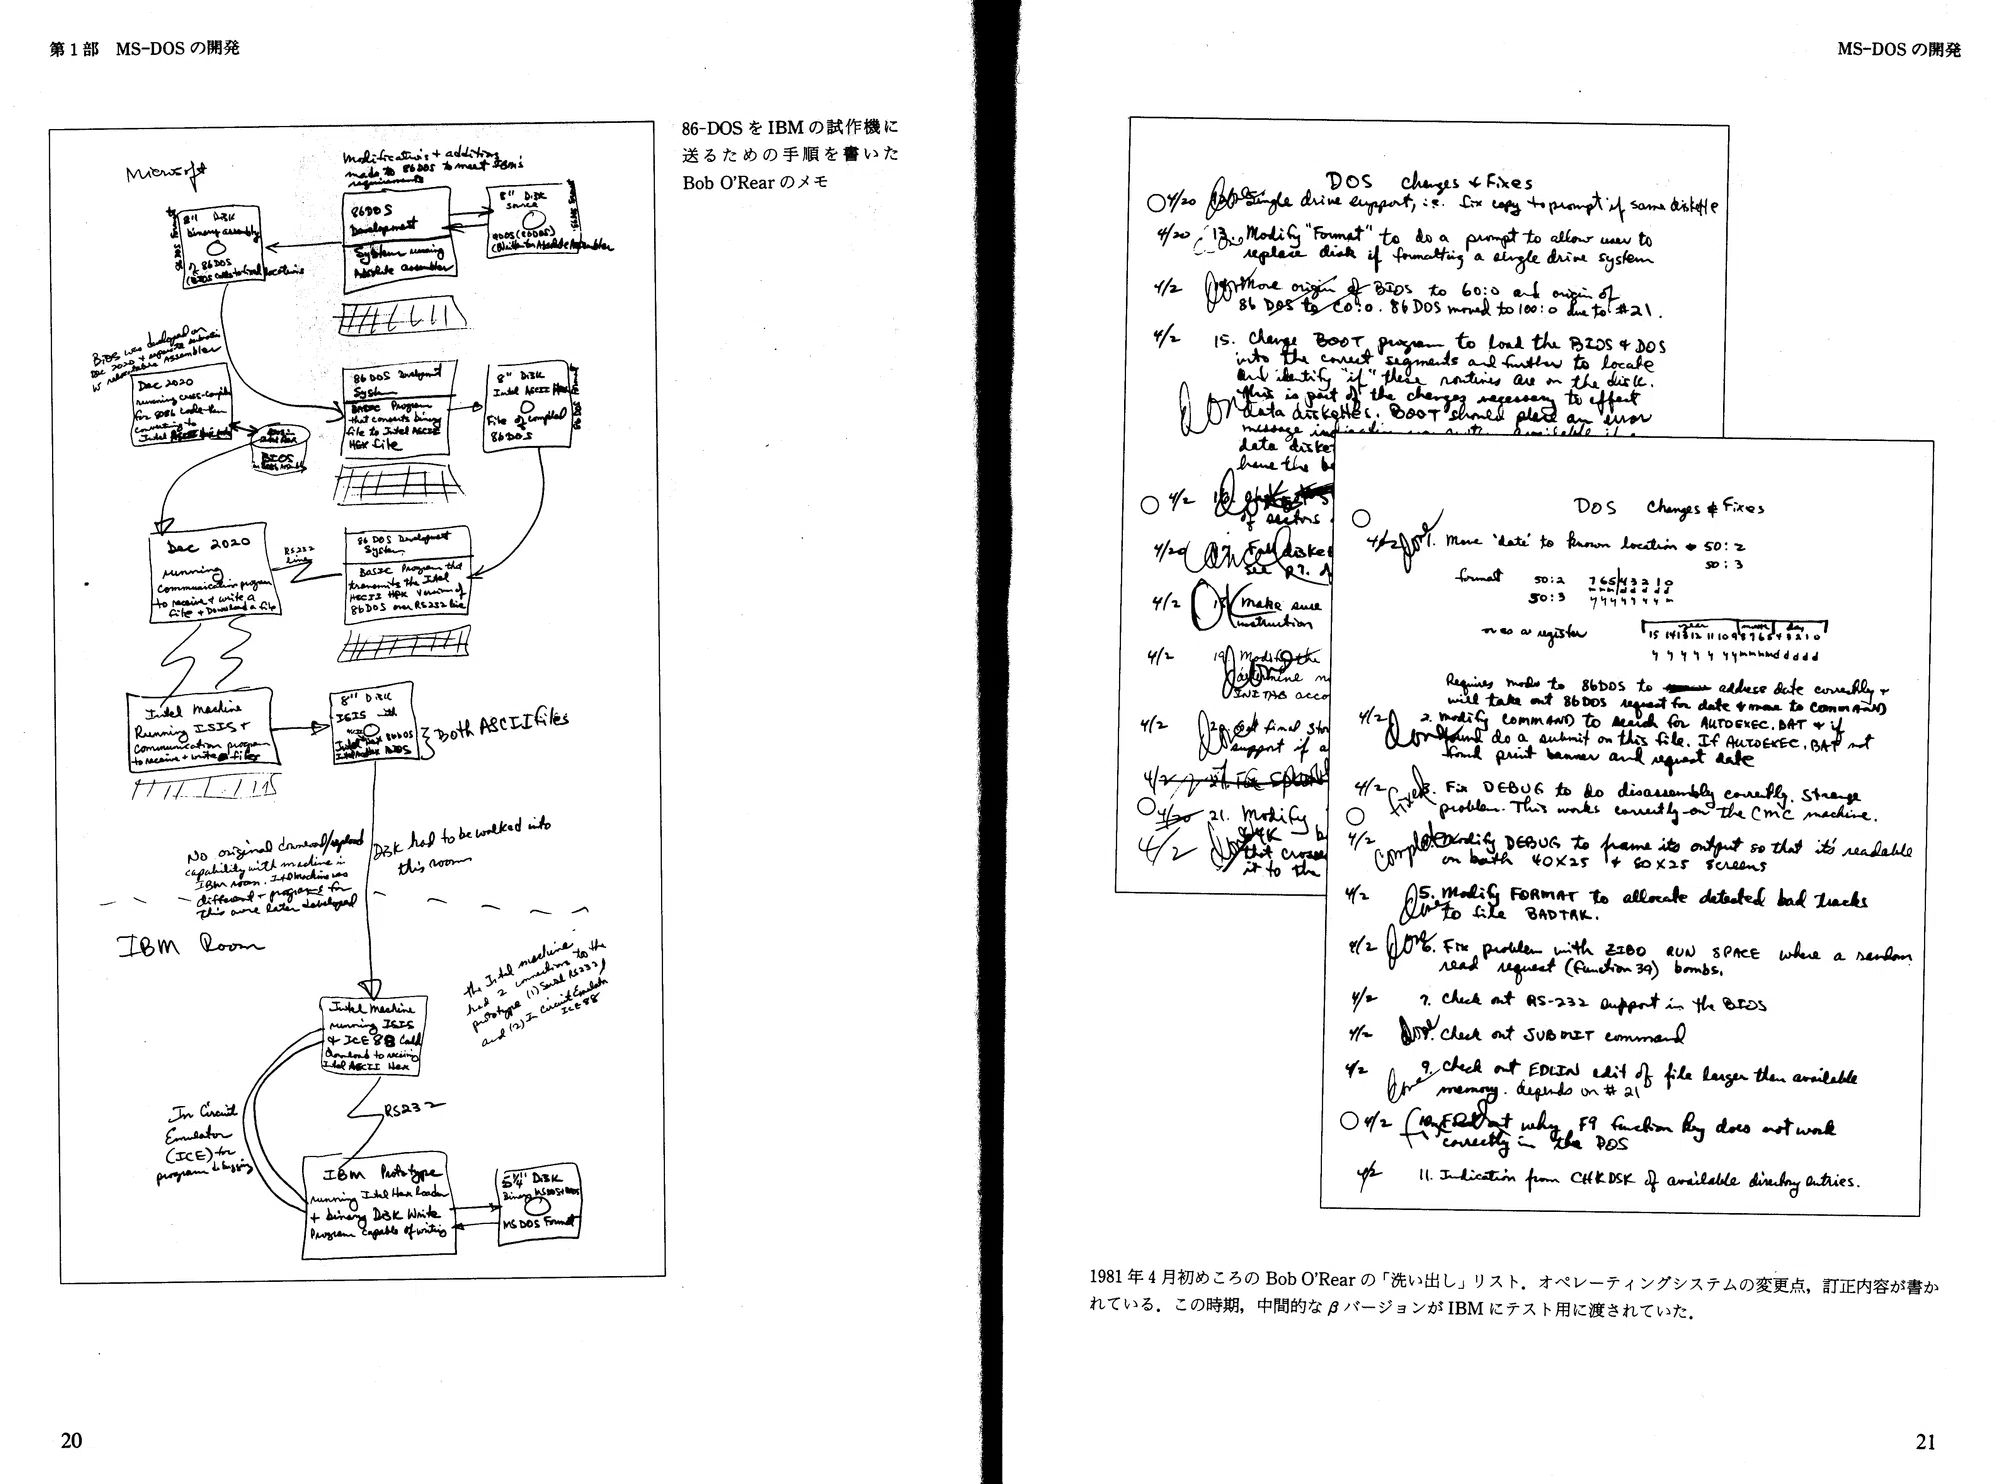 第1部 MS-DOSの開発
Microsoft
Modifications + additions
made to 86DOS to meet IBM's
requirements
86DOS
Development
System running
Absolute assembler
8" Disk
source
8" Disk
binary assembly
of 86DOS
(BIOS calls to fixed locations
BIOS was developed on
Dec 2020
running cross-compiler
for 8086 code then
converting to
BIOS
86DOS Development
System
BASIC Program
that converts binary
file to Intel ASCII
HEX file
8" Disk
Intel ASCII Hex
File of compiled
86DOS
Dec 2020
running
communication program
to receive + write a
file + Download a file
RS232
line
86 DOS Development
System
BASIC Program that
transmits the Intel
ASCII HEX version of
86DOS over RS232 line
Intel Machine
Running ISIS +
communication program
to receive + write files
8" Disk
ISIS
Both ASCII files
No original download/upload
capability with machine in
IBM room. Intel Machine was
different + programs for
this were later developed
Disk had to be walked into
this room
IBM Room
the Intel machine
had 2 connections to the
prototype (1) Serial RS232,
and (2) In Circuit Emulator
ICE88
Intel Machine
running ISIS
+ ICE 88
Download to receiving
Intel ASCII Hex
In Circuit
Emulator
(ICE) for
program debugging
RS232
IBM Prototype
running Intel Hex loader
+ binary Disk Write
Program capable of writing
5¼" Disk
Binary MSDOS+BIOS
MS DOS Format
86-DOSをIBMの試作機に
送るための手順を書いた
Bob O'Rearのメモ
20
MS-DOSの開発
DOS Changes & Fixes
4/20 Single drive support, i.e. fix copy to prompt if same diskette
4/20 13. Modify "Format" to do a prompt to allow user to
replace disk if formatting a single drive system
4/2 Move origin of BIOS to 60:0 and origin of
86 DOS to C0:0. 86DOS moved to 100:0 due to #21.
4/2 15. Change BOOT program to load the BIOS & DOS
into the correct segments and further to locate
and identify "if" these routines are on the disk.
This is part of the changes necessary to effect
data diskettes. BOOT should place an error
data diske
have the b
4/2
of sectors
4/20
see p9.
4/2 make sure
instruction
4/2 19. Modify the
determine
INITAB acco
4/2 20. Get final
support if a
4/2
4/20 21. Modify
4/2
that crosse
it to the
DOS Changes & Fixes
4/2 done 1. Move 'date' to known location 50:2
50:3
format 50:2 7 6 5 4 3 2 1 0
m m m d d d d d
50:3 y y y y y y y m
or as a register
year month day
15 14 13 12 11 10 9 8 7 6 5 4 3 2 1 0
y y y y y y y m m m m d d d d d
Requires mods to 86DOS to address date correctly +
will take out 86DOS request for date & move to COMMAND
4/2 2. Modify COMMAND to search for AUTOEXEC.BAT & if
Done found do a submit on this file. If AUTOEXEC.BAT not
found print banner and request date
4/2 fixed 3. Fix DEBUG to do disassembly correctly. Strange
problem. This works correctly on the CMC machine.
4/2 complete Modify DEBUG to frame its output so that it's readable
on both 40X25 & 80X25 screens
4/2 5. Modify FORMAT to allocate detected bad tracks
Done to file BADTRK.
4/2 Done 6. Fix problem with ZIBO RUN SPACE where a random
read request (function 39) bombs.
4/2 7. Check out RS-232 support in the BIOS
4/2 Done Check out SUBMIT command
4/2 9. Check out EDLIN edit of file larger than available
Done memory. depends on #21
4/2 Find out why F9 function key does not work
correctly in the DOS
4/2 11. Indication from CHKDSK of available directory entries.
1981年4月初めころのBob O'Rearの「洗い出し」リスト．オペレーティングシステムの変更点，訂正内容が書か
れている．この時期，中間的なβバージョンがIBMにテスト用に渡されていた．
21